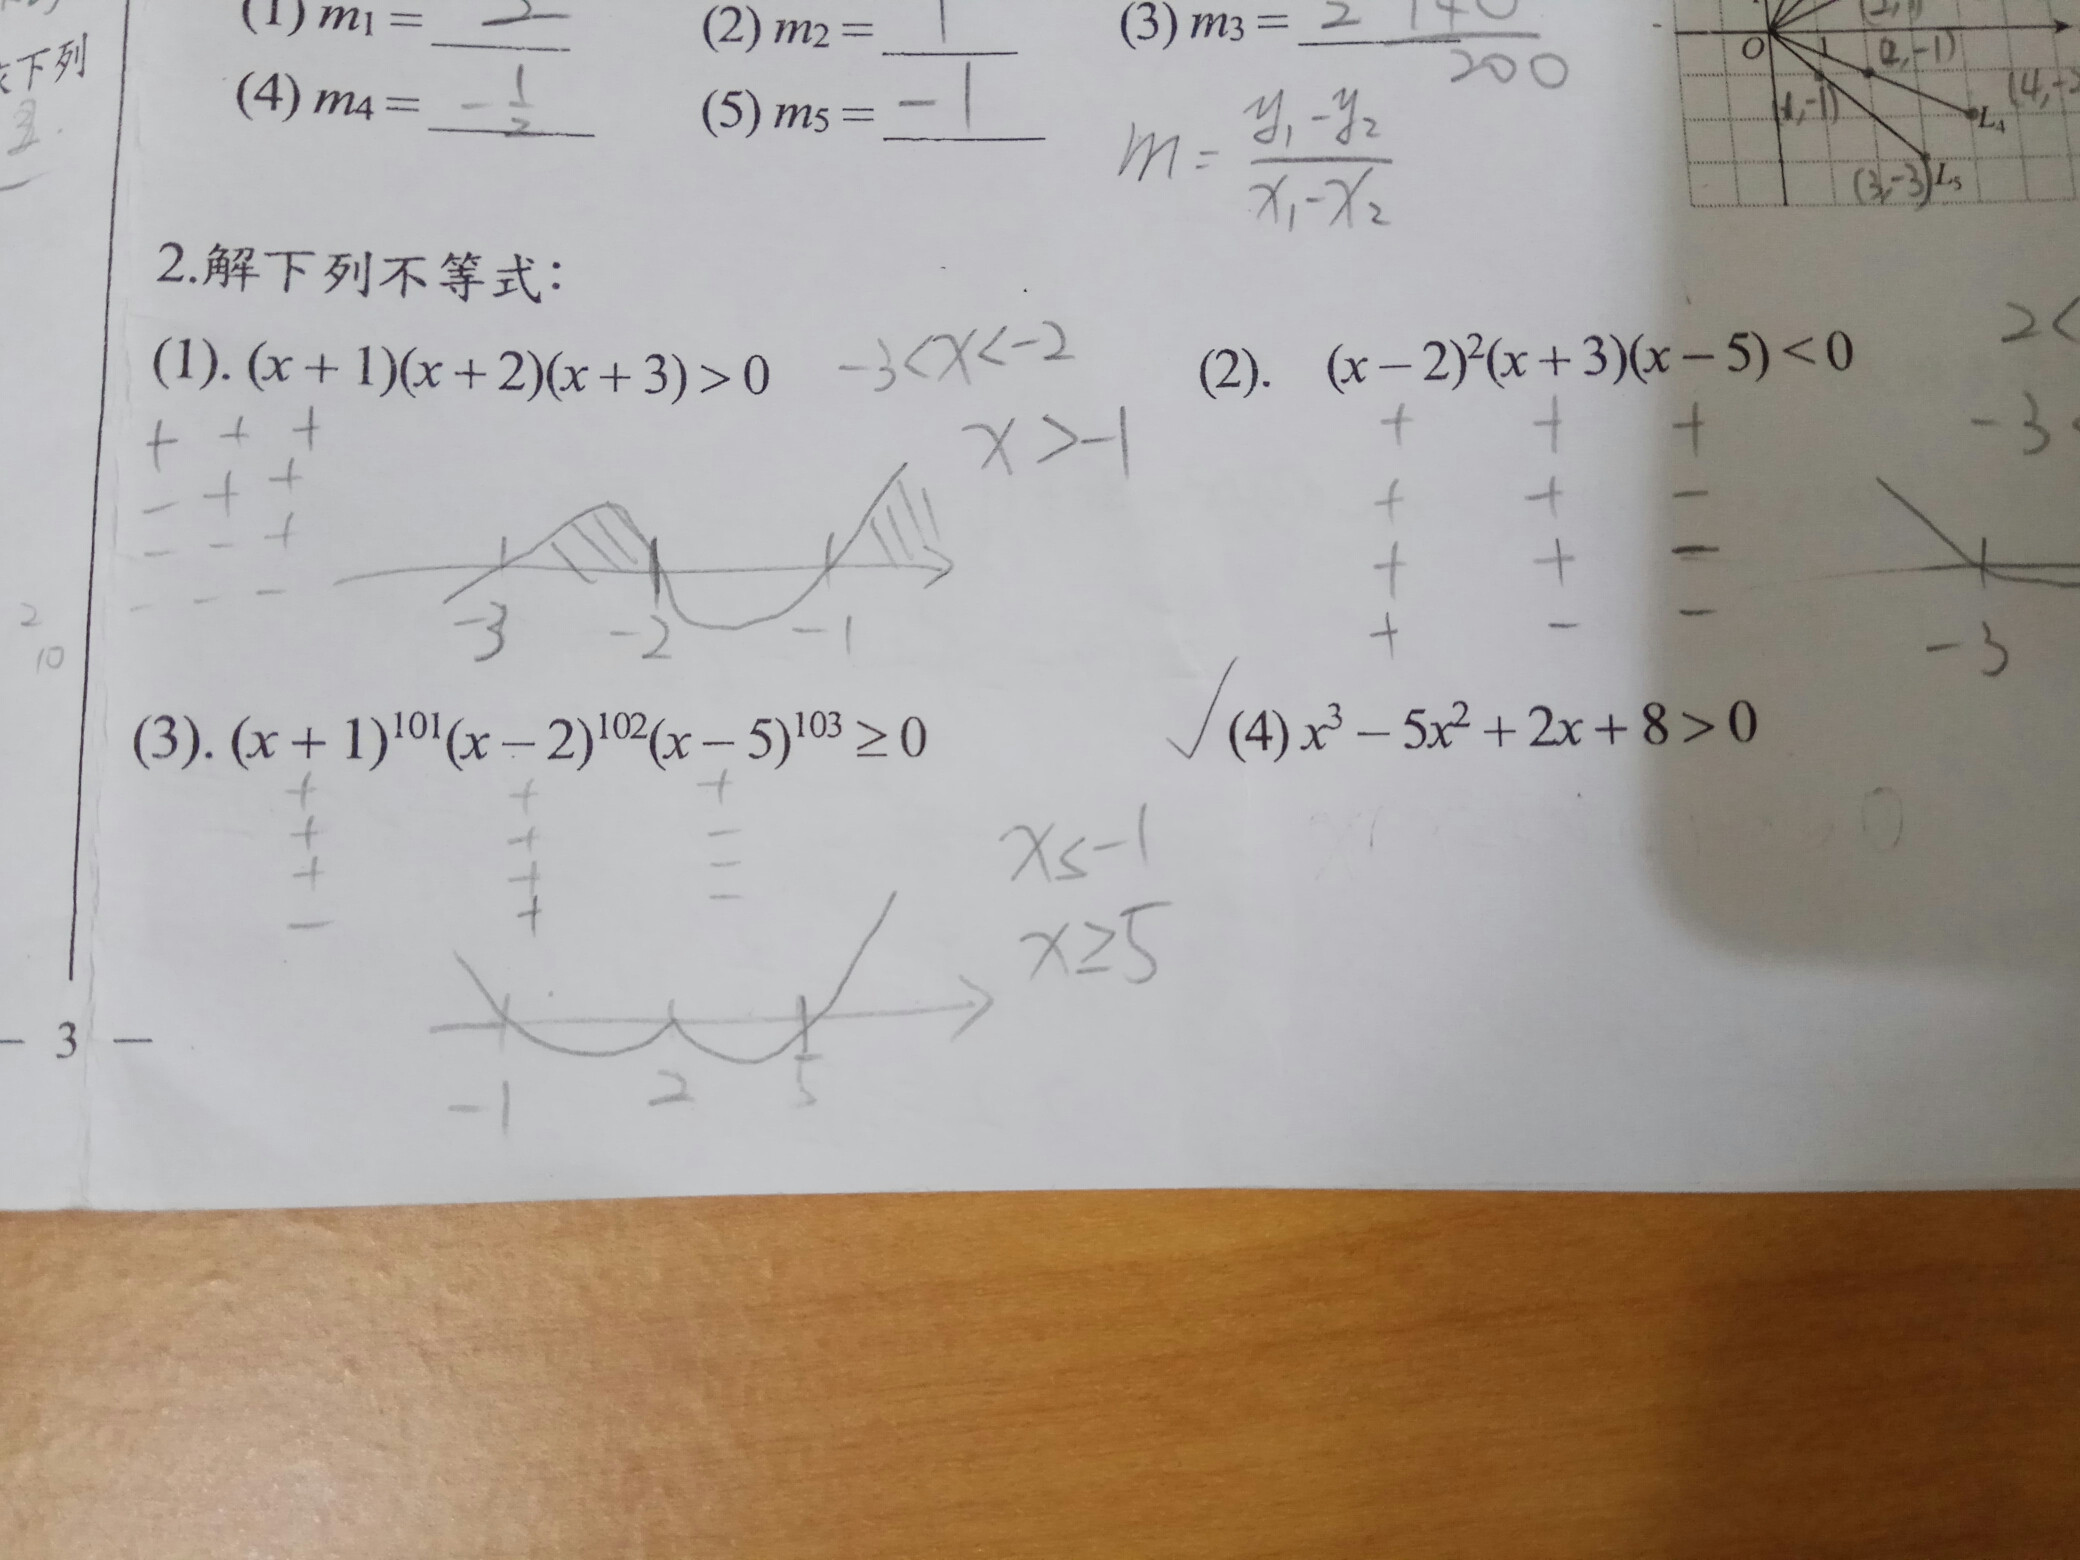 下列
(1) m₁ = 2 (2) m₂ = 1 (3) m₃ = 2 140
200
(4) m₄ = -1/2 (5) m₅ = -1
m = (y₁-y₂)/(x₁-x₂)
O 1 (2,-1)
(1,-1) (4,-2
L₄
(3,-3) L₅
2.解下列不等式：
(1). (x + 1)(x + 2)(x + 3) > 0 -3<x<-2
x>-1
+ + +
- + +
- - +
- - -
-3 -2 -1
(2). (x − 2)²(x + 3)(x − 5) < 0 2<
-3<
+ + +
+ + -
+ + -
+ - -
-3
2
10
(3). (x + 1)¹⁰¹(x − 2)¹⁰²(x − 5)¹⁰³ ≥ 0
+ + +
+ + -
+ + -
- + -
x≤-1
x≥5
-1 2 5
√ (4) x³ − 5x² + 2x + 8 > 0
− 3 −